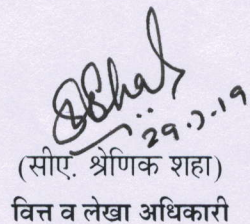 29.7.19
(सीए. श्रेणिक शहा)
वित्त व लेखा अधिकारी